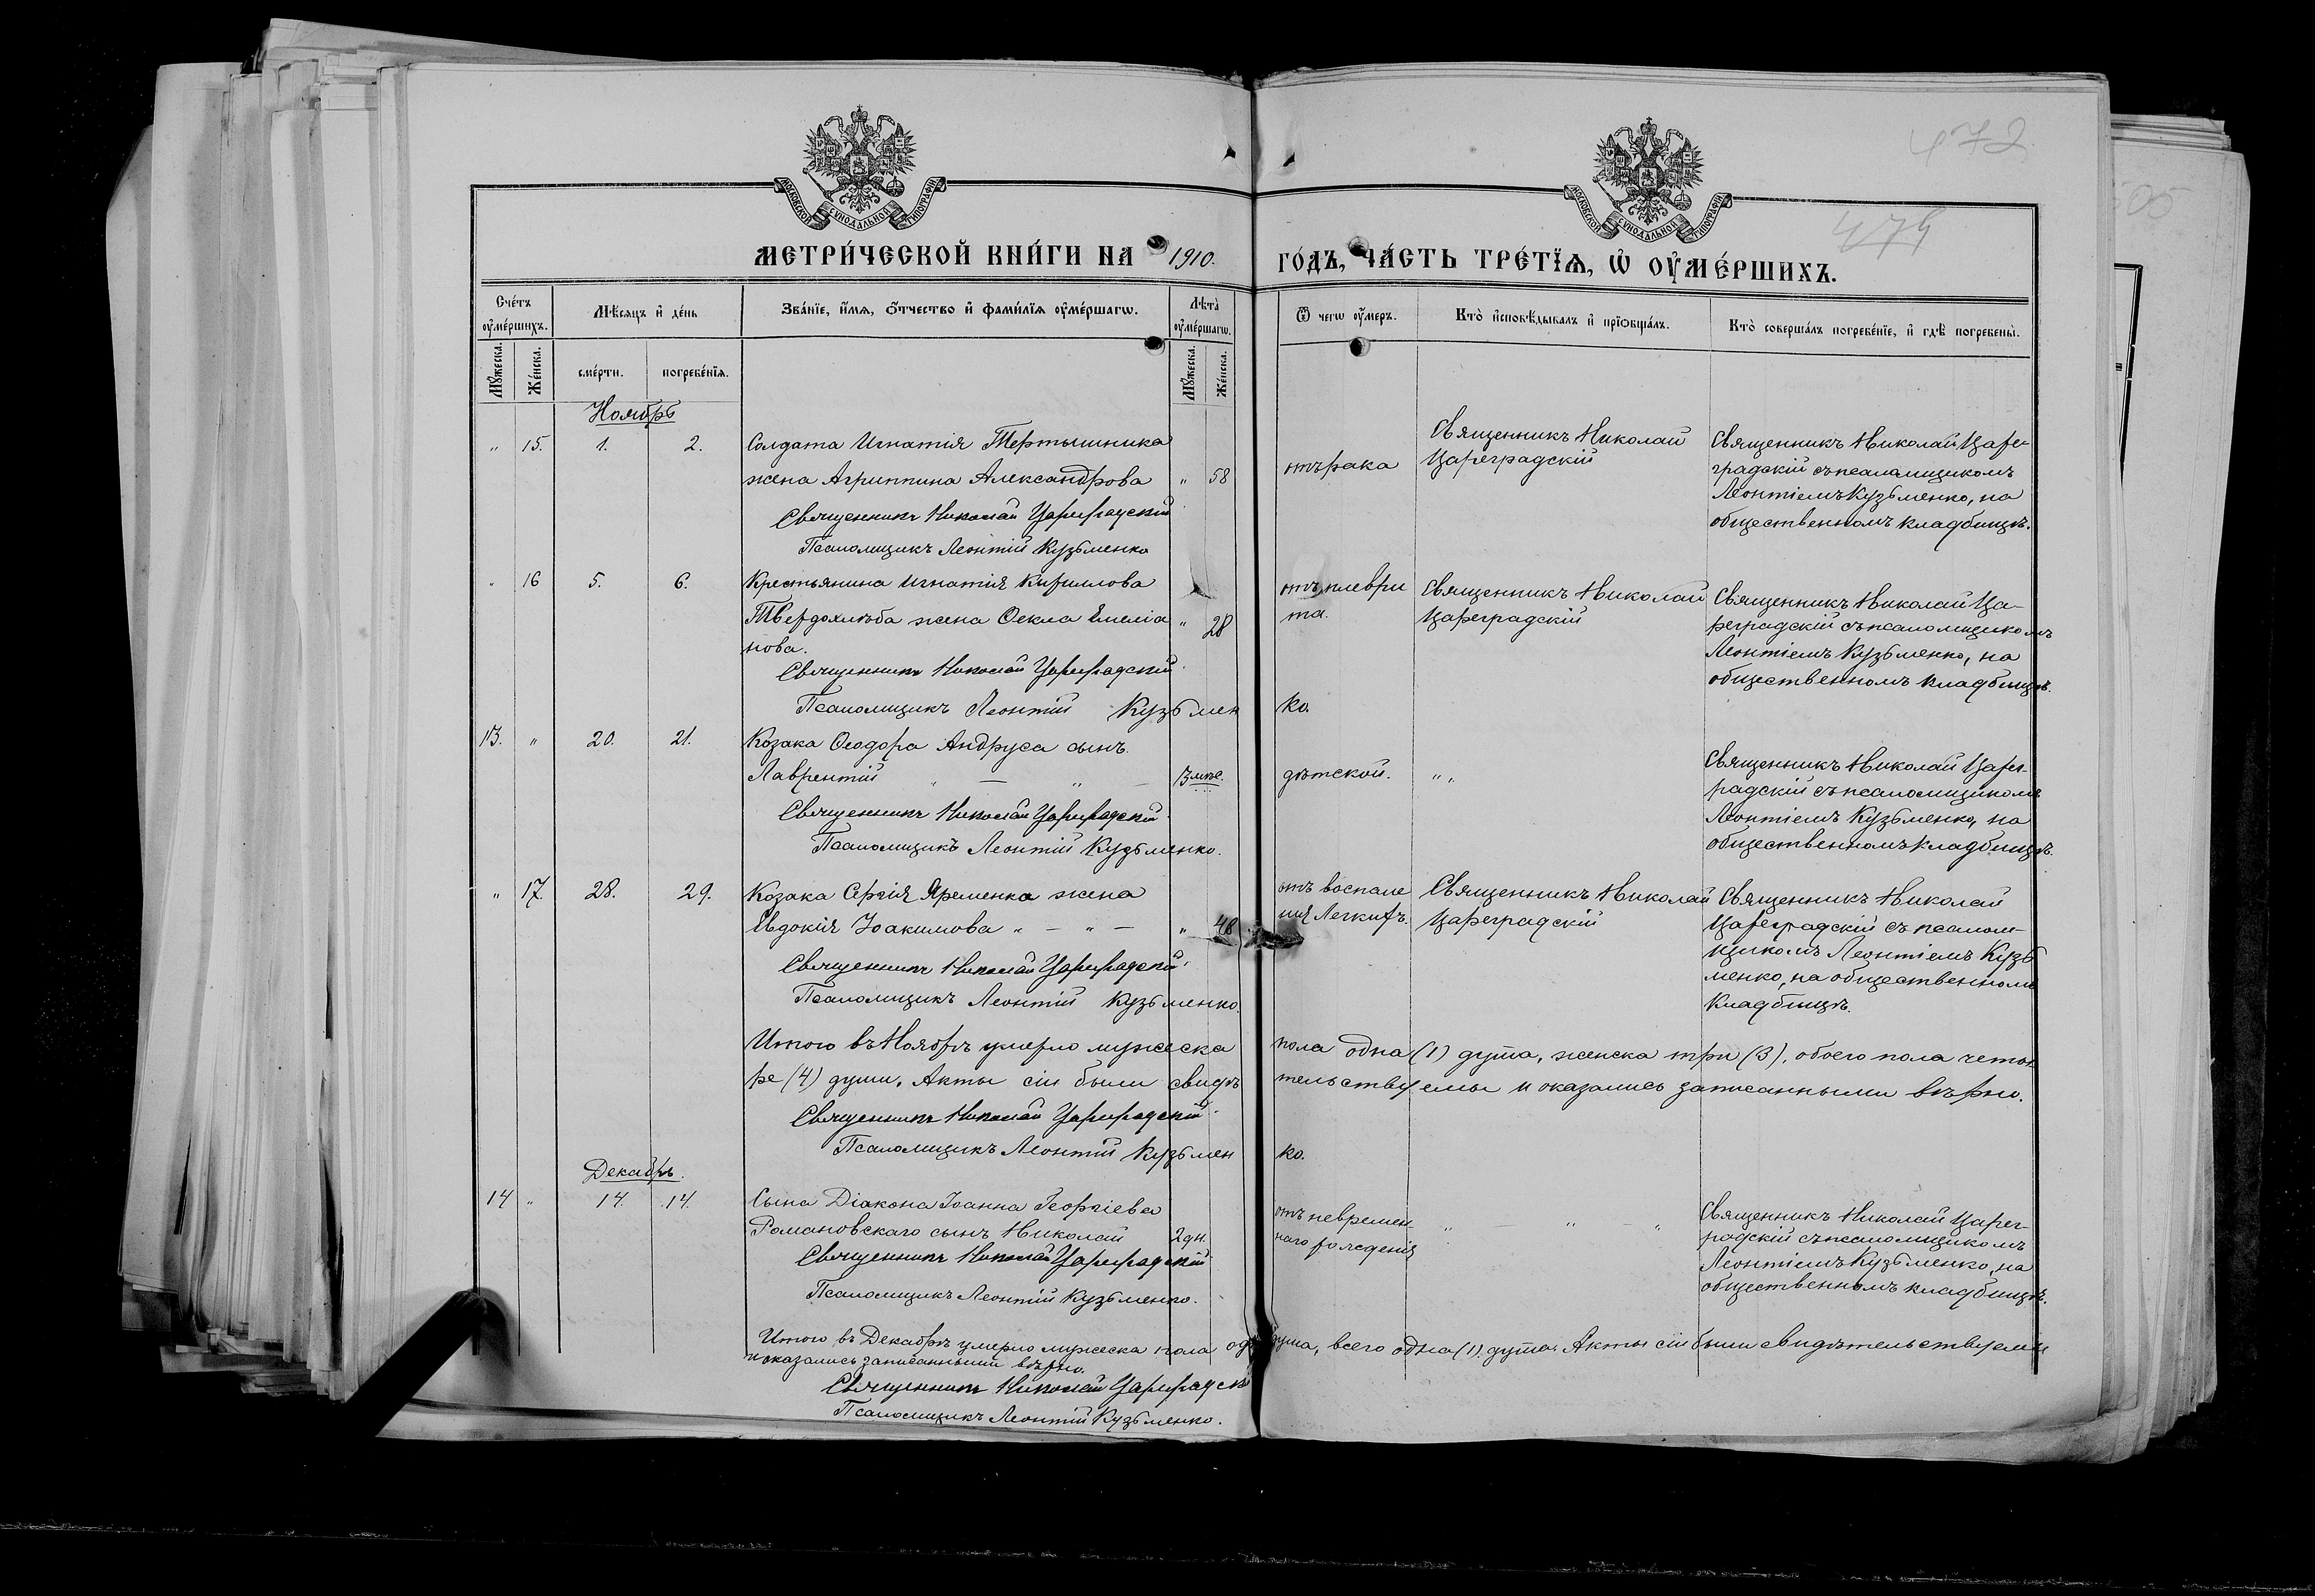 472
474
МОСКОВСКОЙ СУНОДАЛЬНОЙ ТИПОГРАФІИ
МОСКОВСКОЙ СУНОДАЛЬНОЙ ТИПОГРАФІИ
МЕТРИ́ЧЕСКОЙ КНИ́ГИ НА 1910. ГО́ДЪ, ЧА́СТЬ ТРЕ́ТЇѦ, Ѡ҆ ОУ҆МЕ́РШИХЪ.
Сче́тъ оу҆ме́ршихъ.
Мѣ́сяцъ и҆ де́нь
Зва́нїе, и҆́мѧ, ѻ҆́тчество и҆ фами́лїѧ оу҆ме́ршагѡ.
Лѣта̀ оу҆ме́ршагѡ.
Ѿ чегѡ̀ оу҆́меръ.
Кто̀ и҆сповѣ́дывалъ и҆ прїѡбща́лъ.
Кто̀ соверша́лъ погребе́нїе, и҆ гдѣ̀ погребены̀.
Мꙋ́жеска.
Же́нска.
сме́рти.
погребе́нїѧ.
Мꙋ́жеска.
Же́нска.
Ноябрь
„ 15. 1. 2. Солдата Игнатія Тертышника
жена Агриппина Александрова „ 58
Священникъ Николай Цареградскій
Псаломщикъ Леонтій Кузьменко
отъ рака
Священникъ Николай
Цареградскій
Священникъ Николай Царе-
градскій съ псаломщикомъ
Леонтіемъ Кузьменко, на
общественномъ кладбищѣ.
„ 16 5. 6. Крестьянина Игнатія Кириллова
Твердохлѣба жена Ѳекла Емеліа „ 28
нова.
Священникъ Николай Цареградскій
Псаломщикъ Леонтій Кузьменко.
отъ плеври
та.
Священникъ Николай
Цареградскій
Священникъ Николай Ца-
реградскій съ псаломщикомъ
Леонтіемъ Кузьменко, на
общественномъ кладбищѣ.
13. „ 20. 21. Козака Ѳеодора Андруса сынъ
Лаврентій „ — „ — 3 мѣс.
Священникъ Николай Цареградскій
Псаломщикъ Леонтій Кузьменко.
дѣтской.
„ „
Священникъ Николай Царег-
радскій съ псаломщикомъ
Леонтіемъ Кузьменко, на
общественномъ кладбищѣ.
„ 17. 28. 29. Козака Сергія Яременка жена
Евдокія Іоакимова „ — „ — „ 48
Священникъ Николай Цареградскій
Псаломщикъ Леонтій Кузьменко.
отъ воспале
нія Легкихъ.
Священникъ Николай
Цареградскій
Священникъ Николай
Цареградскій съ псалом-
щикомъ Леонтіемъ Кузь
менко, на общественномъ
кладбищѣ.
Итого въ Ноябрѣ умерло мужеска пола одна (1) душа, женска три (3), обоего пола четы
ре (4) души. Акты сіи были свидѣтельствуемы и оказались записанными вѣрно.
Священникъ Николай Цареградскій
Псаломщикъ Леонтій Кузьменко.
Декабрь.
14 „ 14. 14. Сына Діакона Іоанна Георгіева
Романовскаго сынъ Николай 2 дн.
Священникъ Николай Цареградскій
Псаломщикъ Леонтій Кузьменко.
отъ невремен-
наго рожденія
„ — „ — „
Священникъ Николай Царег-
радскій съ псаломщикомъ
Леонтіемъ Кузьменко, на
общественномъ кладбищѣ.
Итого въ Декабрѣ умерло мужеска пола одна душа, всего одна (1) душа. Акты сіи были свидѣтельствуемы
и оказались записанными вѣрно.
Священникъ Николай Цареградскій
Псаломщикъ Леонтій Кузьменко.